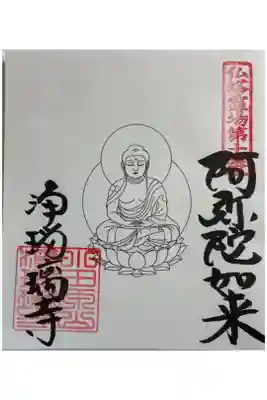 仏塔霊場第十
阿弥陀如来
浄瑠璃寺